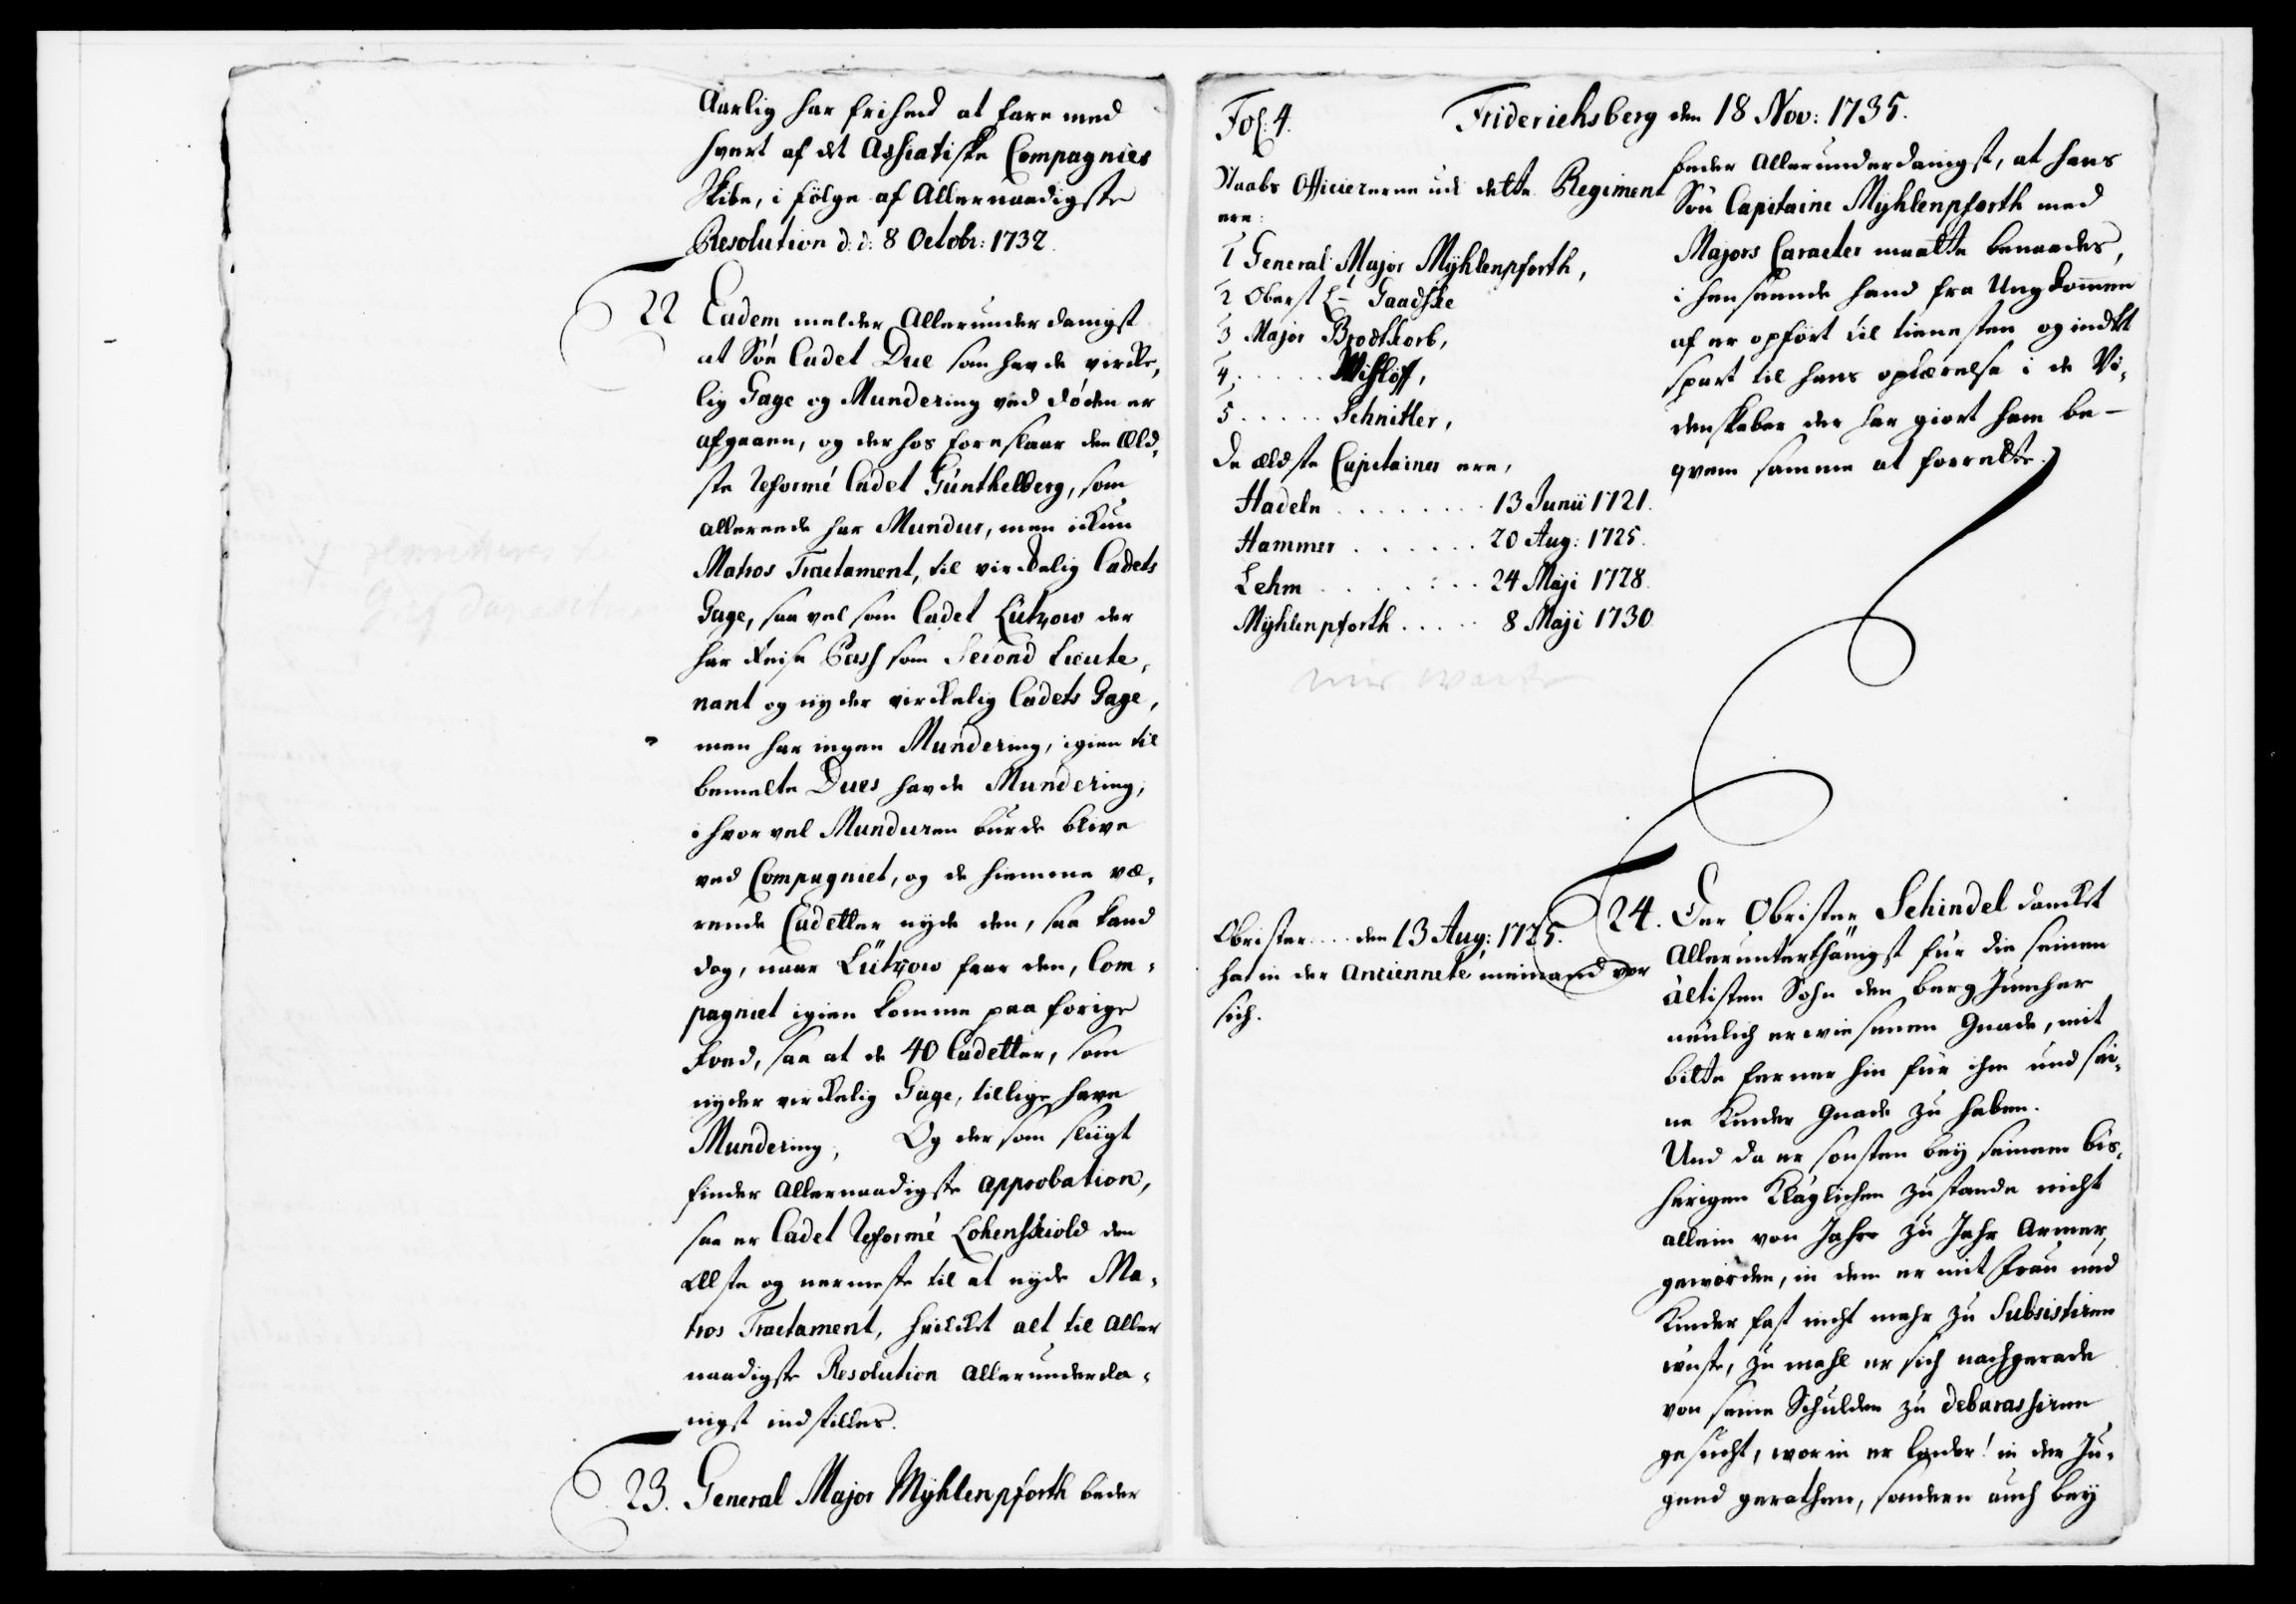 Aarlig har frihed at fare med
hvert af det Assiatiske Compagnies
Skibe, i fölge af Allernaadigste
Resolution d: d: 8 Octobr: 1732.
22 Eadem melder Allerunderdanigst
at Söe Cadet Due som havde vircke,
lig Gage og Mundering ved döden er
afgaaen, og derhos foreslaar den Æld,
ste Reformé Cadet Günthelberg, som
allereede har Mundur, men ickun
Matros Tractament, til virckelig Cadets
Gage, saa vel som Cadet Lützow der
har Reise Pass som Second Lieute,
nant og nyder virckelig Cadets Gage,
men har ingen Mundering, igien til
bemelte Dues havde Mundering,
ihvorvel Munduren burde blive
ved Compagniet, og de hiemme væ,
rende Cadetter nyde den, saa kand
dog, naar Lützow faar den, Com,
pagniet igien komme paa forige
foed, saa at de 40 Cadetter, som
nyder virckelig Gage, tillige have
Mundering, Og dersom sligt
finder Allernaadigste approbation,
saa er Cadet Reformé Lohenskiold den
Ælste og nermeste til at nyde Ma,
tros Tractament, hvilcket alt til Aller
naadigste Resolution Allerunderda,
nigst indstilles.
23. General Major Myhlenpforth beder
Fol: 4. Friderichsberg den 18 Nov: 1735.
Staabs Officiererne ved dette Regiment
ere:
1 General Major Myhlenpforth,
2 Oberst Lt Gaadske
3 Major Brodtkorb,
4, ..... Wisløff,
5 ..... Schnitler,
De ældste Capitainer ere,
Hadeln ........ 13 Junii 1721.
Hammer ...... 20 Aug: 1725.
Lehm ....... 24 Maji 1728.
Myhlenpforth ..... 8 Maji 1730
beder Allerunderdanigst, at hans
Sön Capitaine Myhlenpforth med
Majors Caracter maatte benaades,
i henseende hand fra Ungdommen
af er opfört til tienesten og indtet
spart til hans oplærelse i de Vi,
denskaber der har giort ham be-
qvem samme at forrette.
Obrister .... den 13 Aug: 1725.
hat in der Ancienneté niemand vor
sich.
24. Der Obrister Schindel dancket
Allerunterthänigst für die seinen
ältisten Sohn den Berg Juncker
neulich erwiesenen Gnade, mit
bitte ferner hin für ihm und sei,
ne Kinder Gnade zu haben.
Und da er sonsten bey seinem bis,
herigen Kläglichen zustande nicht
allein von Jahr zu Jahr Armer,
geworden, in dem er mit Frau und
Kinder fast nicht mehr zu Subsistiren
wuste, zu mahl er sich nachgerade
von seine Schulden zu debarassiren
gesucht, worin er leider! in der Ju,
gend gerathen, sondern auch bey